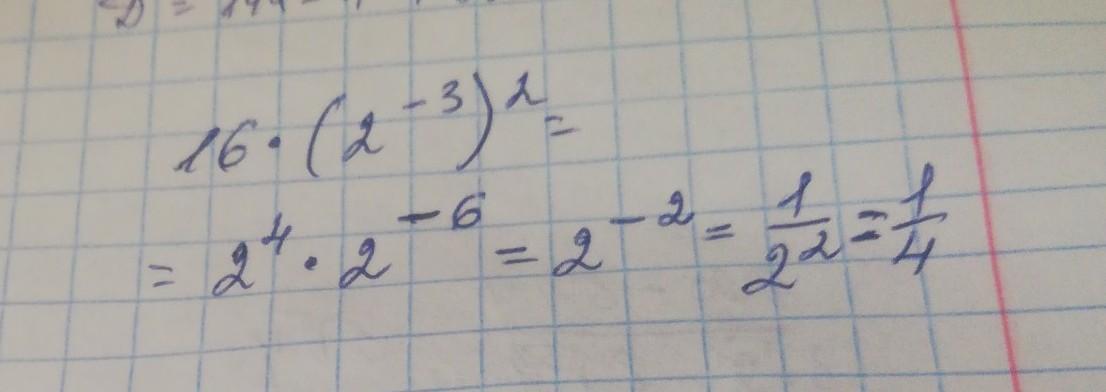 D = 144 -
16 · (2⁻³)² =
= 2⁴ · 2⁻⁶ = 2⁻² = 1/2² = 1/4